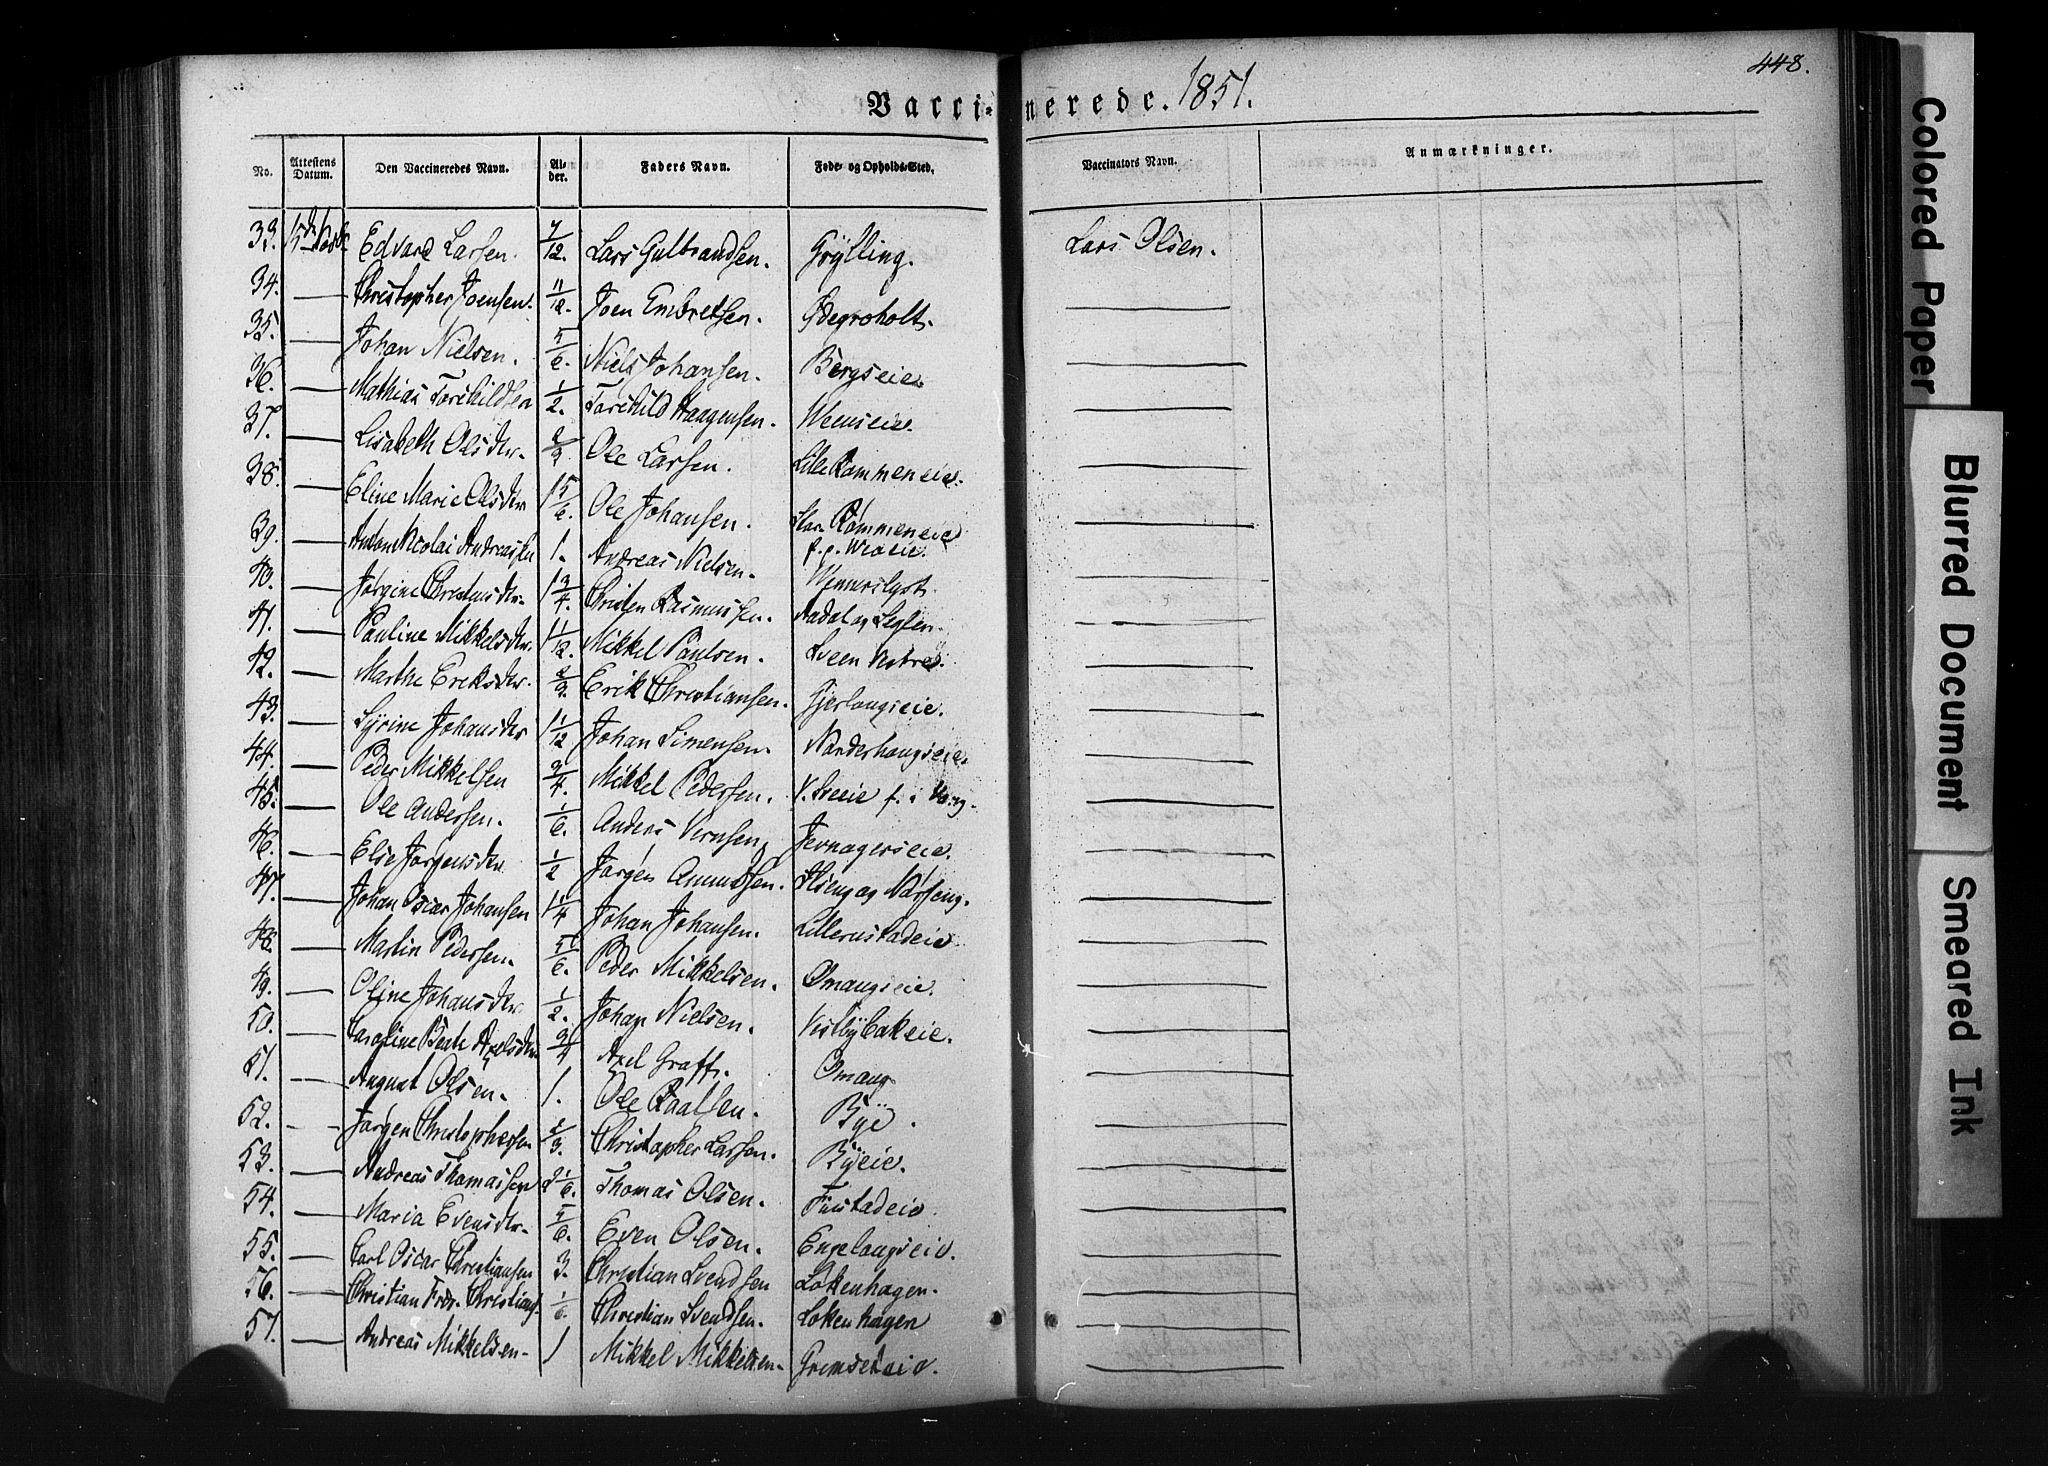 448.
Vaccinerede. 1851.
No. Attestens Datum. Den Vaccineredes Navn. Alder. Faders Navn. Føde- og Opholds-Sted. Vaccinators Navn. Anmærkninger.
33. 15de Edvard Larsen. 7/12. Lars Gulbrandsen. Grylling. Lars Olsen.
34. — Christopher Joensen. 11/12. Joen Embretsen. Ødegroholt. —
35. — Johan Nielsen. 5/6. Niels Johansen. Bergseie. —
36. — Mathias Torchildsen 1/2. Torchild Haagensen. Weenseie. —
37. — Lisabeth Olsdtr. Ole Larsen. Lille Rommeneie. —
38. — Eline Marie Olsdtr 1 5/6. Ole Johansen. Stor Rommeneie —
39. — Anton Nicolai Andreassen 1. Andreas Nielsen. —
40. — Jørgine Christensdtr. 1 3/4. Christen Rasmussen. —
41. — Pauline Mikkelsdtr. 1 1/12. Mikkel Paulsen. Sveen Vestre. —
42. — Marthe Eriksdtr. 2/3. Erik Christiansen. Gjerlaugseie. —
43. — Syrine Johansdtr 1 1/12 Johan Simensen. Norderhougseie. —
44. — Peder Mikkelsen 3/4. Mikkel Pedersen. —
45. — Ole Andersen. 1/6. Anders Iversen. Jevnagerseie. —
46. — Else Jørgensdtr 1/2 Jørgen Amundsen. —
47. — Johan Oscar Johansen 1 1/4 Johan Johansen. Lillerustadeie —
48. — Martin Pedersen. 5/6. Peder Mikkelsen. Omangseie. —
49. — Oline Johansdtr. 1/2. Johan Nielsen. Vestbybakeie. —
50. — Caroline Beate Axelsdtr. 3/4 Axel Graff. Omang —
51. — August Olsen. 1. Ole Paalsen. Bye. —
52. — Jørgen Christophersen 2/3. Christopher Larsen. Byeie. —
53. — Andreas Thomassen 2 1/6. Thomas Olsen. Finstadeie —
54. — Maria Evensdtr. 5/6. Even Olsen. Engelaugseie. —
55. — Carl Oscar Christiansen 3. Christian Svendsen Løkenhagen. —
56. — Christian Fredr. Christians. 1/6. Christian Svendsen. Løkenhagen —
57. — Andreas Mikkelsen. 1 Mikkel Mikkelsen. Grimseteie. —
Colored Paper
Blurred Document
Smeared Ink